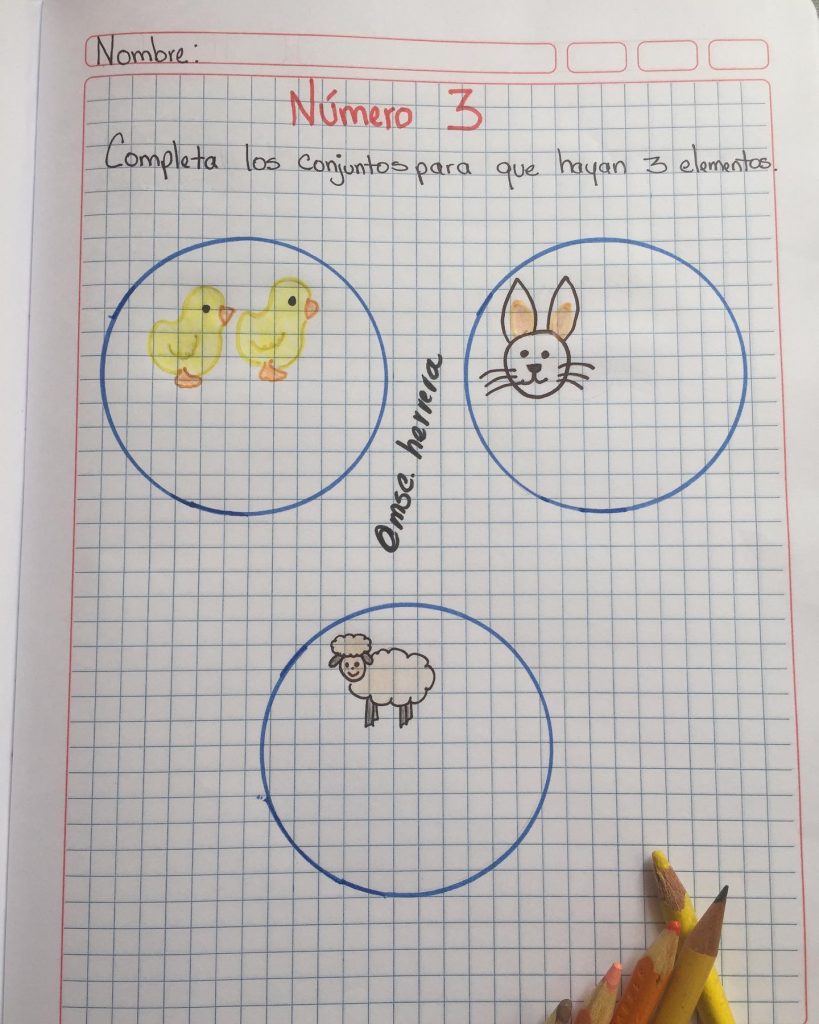 Nombre:
Número 3
Completa los conjuntos para que hayan 3 elementos.
Omsc. herrera